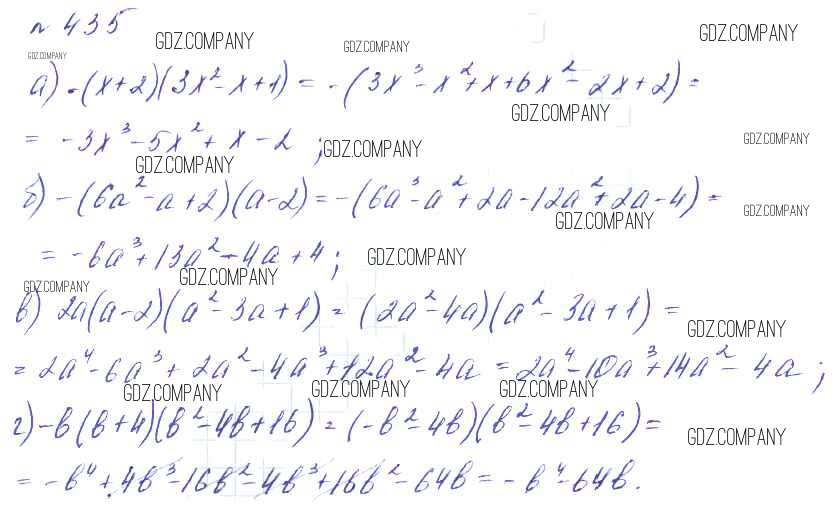 № 435
GDZ.COMPANY GDZ.COMPANY GDZ.COMPANY
GDZ.COMPANY
а) -(x+2)(3x²-x+1) = -(3x³-x²+x+6x²-2x+2) =
GDZ.COMPANY
= -3x³-5x²+x-2 ;
GDZ.COMPANY GDZ.COMPANY
GDZ.COMPANY
б) -(6a²-a+2)(a-2) = -(6a³-a²+2a-12a²+2a-4) =
GDZ.COMPANY GDZ.COMPANY
= -6a³+13a²-4a+4 ;
GDZ.COMPANY
GDZ.COMPANY GDZ.COMPANY
в) 2a(a-2)(a²-3a+1) = (2a²-4a)(a²-3a+1) =
GDZ.COMPANY
= 2a⁴-6a³+2a²-4a³+12a²-4a = 2a⁴-10a³+14a²-4a ;
GDZ.COMPANY GDZ.COMPANY GDZ.COMPANY
г) -b(b+4)(b²-4b+16) = (-b²-4b)(b²-4b+16) =
GDZ.COMPANY
= -b⁴+4b³-16b²-4b³+16b²-64b = -b⁴-64b.